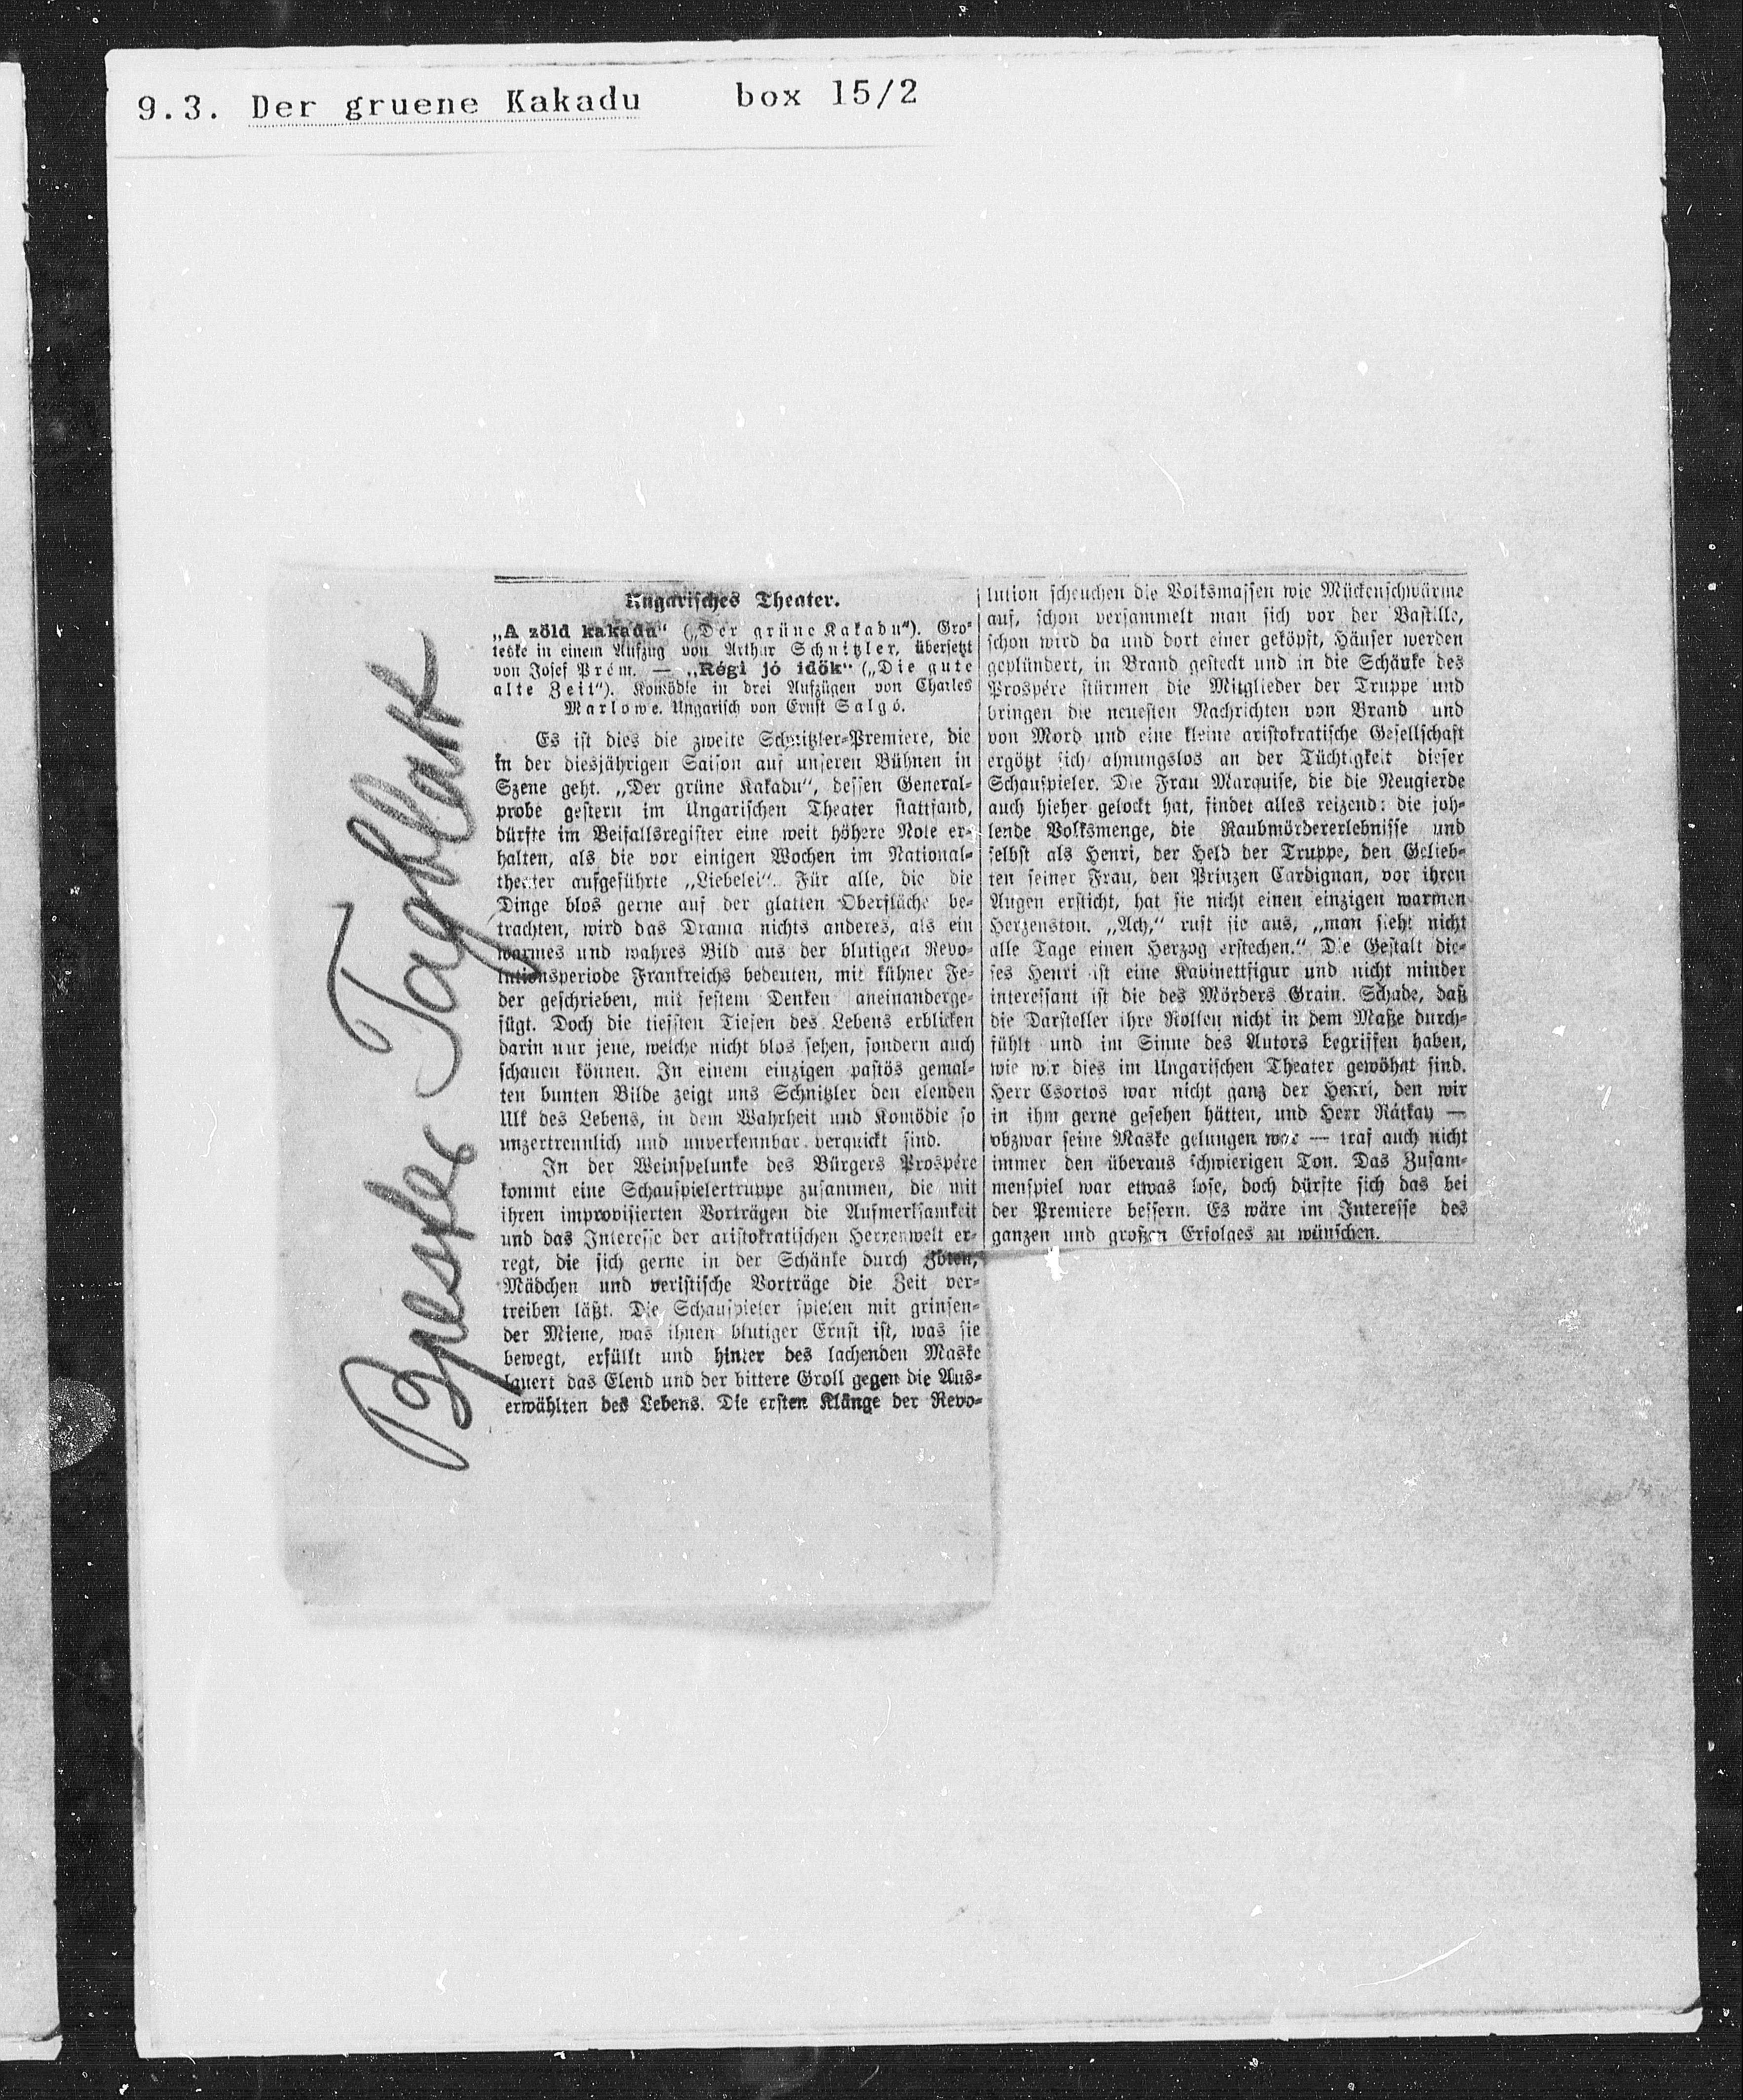 9.3. Der gruene Kakadu box 15/2
Pester Tagblatt
Ungarisches Theater.
„A zöld kakadu“ („Der grüne Kakadu“). Gro-
teske in einem Aufzug von Arthur Schnitzler, übersetzt
von Josef Prém. — „Régi jó idök“ („Die gute
alte Zeit“). Komödie in drei Aufzügen von Charles
Marlowe. Ungarisch von Ernst Salgó.
Es ist dies die zweite Schnitzler-Premiere, die
in der diesjährigen Saison auf unseren Bühnen in
Szene geht. „Der grüne Kakadu“, dessen General-
probe gestern im Ungarischen Theater stattfand,
dürfte im Beifallsregister eine weit höhere Note er-
halten, als die vor einigen Wochen im National-
theater aufgeführte „Liebelei“. Für alle, die die
Dinge blos gerne auf der glatten Oberfläche be-
trachten, wird das Drama nichts anderes, als ein
warmes und wahres Bild aus der blutigen Revo-
lutionsperiode Frankreichs bedeuten, mit kühner Fe-
der geschrieben, mit festem Denken aneinanderge-
fügt. Doch die tiefsten Tiefen des Lebens erblicken
darin nur jene, welche nicht blos sehen, sondern auch
schauen können. In einem einzigen pastös gemal-
ten bunten Bilde zeigt uns Schnitzler den elenden
Ulk des Lebens, in dem Wahrheit und Komödie so
unzertrennlich und unverkennbar verquickt sind.
In der Weinspelunke des Bürgers Prospére
kommt eine Schauspielertruppe zusammen, die mit
ihren improvisierten Vorträgen die Aufmerksamkeit
und das Interesse der aristokratischen Herrenwelt er-
regt, die sich gerne in der Schänke durch Zoten,
Mädchen und veristische Vorträge die Zeit ver-
treiben läßt. Die Schauspieler spielen mit grinsen-
der Miene, was ihnen blutiger Ernst ist, was sie
bewegt, erfüllt und hinter des lachenden Maske
lauert das Elend und der bittere Groll gegen die Aus-
erwählten des Lebens. Die ersten Klänge der Revo-
lution scheuchen die Volksmassen wie Mückenschwärme
auf, schon versammelt man sich vor der Bastille,
schon wird da und dort einer geköpft, Häuser werden
geplündert, in Brand gesteckt und in die Schänke des
Prospére stürmen die Mitglieder der Truppe und
bringen die neuesten Nachrichten von Brand und
von Mord und eine kleine aristokratische Gesellschaft
ergötzt sich ahnungslos an der Tüchtigkeit dieser
Schauspieler. Die Frau Marquise, die die Neugierde
auch hieher gelockt hat, findet alles reizend: die joh-
lende Volksmenge, die Raubmördererlebnisse und
selbst als Henri, der Held der Truppe, den Gelieb-
ten seiner Frau, den Prinzen Cardignan, vor ihren
Augen ersticht, hat sie nicht einen einzigen warmen
Herzenston. „Ach,“ ruft sie aus, „man sieht nicht
alle Tage einen Herzog erstechen.“ Die Gestalt die-
ses Henri ist eine Kabinettfigur und nicht minder
interessant ist die des Mörders Grain. Schade, daß
die Darsteller ihre Rollen nicht in dem Maße durch-
fühlt und im Sinne des Autors begriffen haben,
wie wir dies im Ungarischen Theater gewöhnt sind.
Herr Csortos war nicht ganz der Henri, den wir
in ihm gerne gesehen hätten, und Herr Rátkay —
obzwar seine Maske gelungen war — traf auch nicht
immer den überaus schwierigen Ton. Das Zusam-
menspiel war etwas lose, doch dürfte sich das bei
der Premiere bessern. Es wäre im Interesse des
ganzen und großen Erfolges zu wünschen.